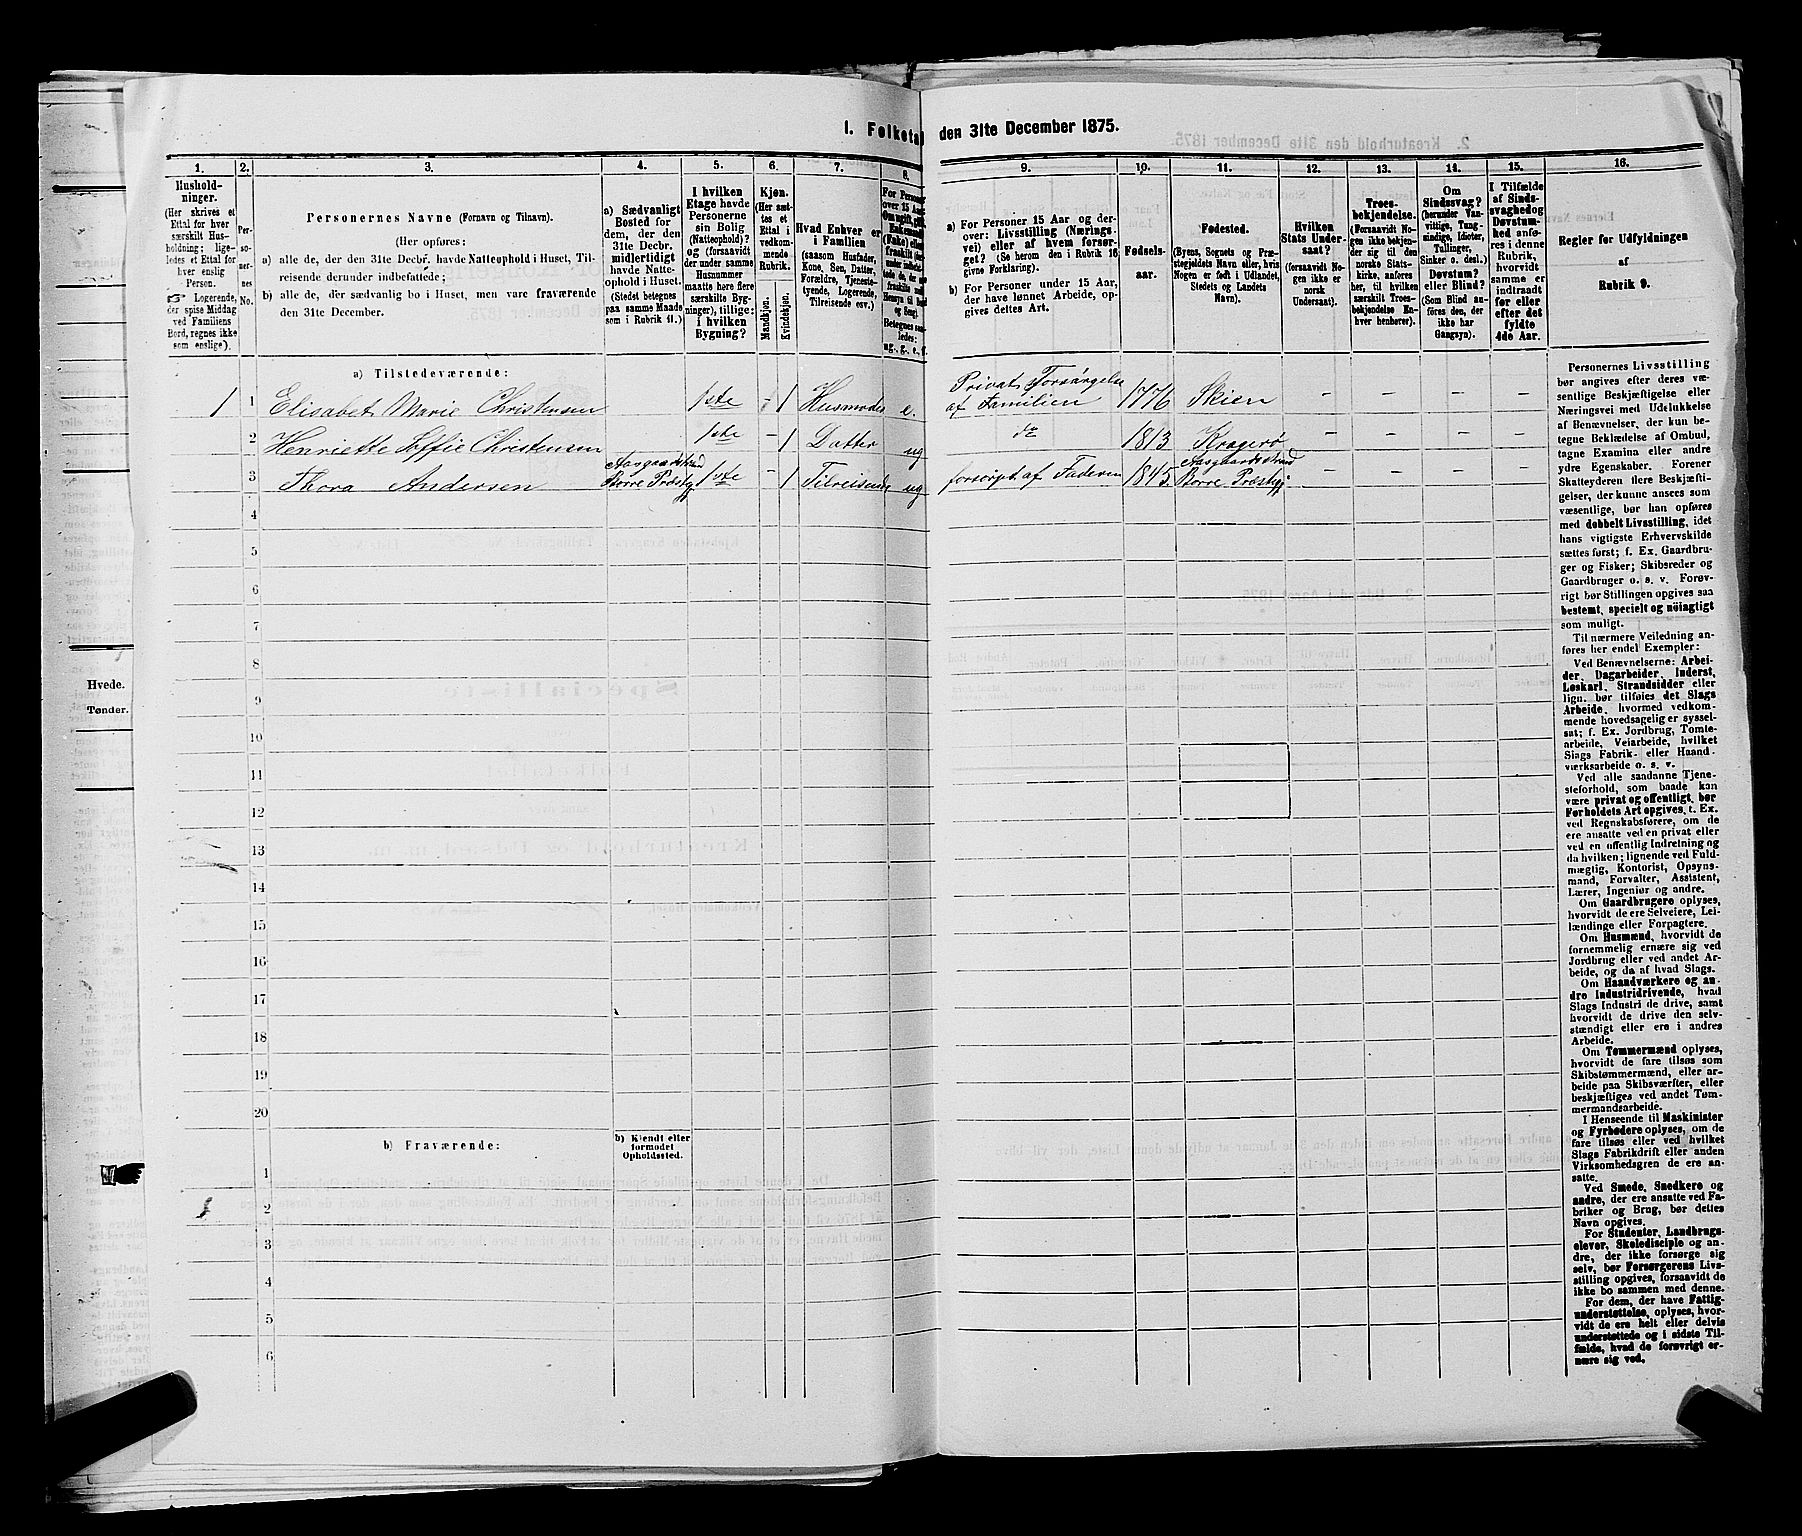 1. Folketal den 31te December 1875.
1.
Hushold-
ninger.
(Her skrives et
Ettal for hver
særskilt Hus-
holdning; lige-
ledes et Ettal for
hver enslig
Person.
Logerende,
der spise Middag
ved Familiens
Bord, regnes ikke
som enslige).
2.
Per-
so-
ner-
nes
No.
3.
Personernes Navne (Fornavn og Tilnavn).
(Her opføres:
a) alle de, der den 31te Decbr. havde Natteophold i Huset, Til-
reisende derunder indbefattede;
b) alle de, der sædvanlig bo i Huset, men vare fraværende
den 31te December.
4.
a) Sædvanligt
Bosted for
dem, der den
31te Decbr.
midlertidigt
havde Natte-
ophold i Huset.
(Stedet betegnes
paa samme Maade
som i Rubrik 11.)
5.
I hvilken
Etage havde
Personerne
sin Bolig
(Natteophold)?
og (forsaavidt
der under samme
Husnummer
maatte høre flere
særskilte Byg-
ninger), tillige:
i hvilken
Bygning?
6.
Kjøn.
(Her sæt-
tes et
Ettal i
vedkom-
mende
Rubrik.
Mandkjøn.
Kvindekjøn.
7.
Hvad Enhver er
i Familien
(saasom Husfader,
Kone, Søn, Datter,
Forældre, Tjeneste-
tyende, Logerende,
Tilreisende osv.)
8.
9.
a) For Personer 15 Aar og der-
over: Livsstilling (Nærings-
vei) eller af hvem forsør-
get (Se herom den i Rubrik 16
givne Forklaring).
b) For Personer under 15 Aar,
der have lønnet Arbeide, op-
gives dettes Art.
10.
Fødsels-
aar.
11.
Fødested.
(Byens, Sognets og Præ-
stegjeldets Navn eller, hvis
Nogen er født i Udlandet,
Stedets og Landets
Navn).
12.
Hvilken
Stats Under-
saat?
(forsaavidt No-
gen ikke er
norsk
Undersaat).
13.
Troes-
bekjendelse.
(Forsaavidt No-
gen ikke bekjen-
der sig til den
norske Stats-
kirke, anføres
her, til hvilken
særskilt Troes-
bekjendelse En-
hver henhører).
14.
Om
Sindssvag?
(herunder Van-
vittige, Tung-
sindige, Idioter,
Tullinger,
Sinker o. desl.)
Døvstum?
eller Blind?
(Som Blind an-
føres den, der
ikke har
Gangsyn).
15.
I Tilfælde
af Sinds-
svaghed og
Døvstum-
hed anfø-
res i denne
Rubrik,
hvorvidt
samme er
indtraadt
før eller
efter det
fyldte
4de Aar.
16.
Regler for Udfyldningen
af
Rubrik 9.
a) Tilstedeværende:
1 1 Elisabet Marie Christensen 1ste - 1 Husmoder e. Privat Forsørgelse af Familien 1776 Skien - - - -
2 Henriette Soffie Christensen 1ste - 1 Datter ug do 1813 Kragerø - - - -
3 Thora Andersen Aasgaardstrand Borre Præstgj 1ste - 1 Tilreisende ug forsørget af Faderen 1845 Aasgaardsstrand Borre Præstgj. - - - -
4
5
6
7
8
9
10
11
12
13
14
15
16
17
18
19
20
b) Fraværende:
b) Kjendt eller
formodet
Opholdssted.
1
2
3
4
5
6
Hvede.
Tønder.
Personernes Livsstilling
bør angives efter deres væ-
sentlige Beskjæftigelse eller
Næringsvei med Udelukkelse
af Benævnelser, der kun be-
tegne Beklædelse af Ombud,
tagne Examina eller andre
ydre Egenskaber. Forener
Skatteyderen flere Beskjæfti-
gelser, der kunne ansees som
væsentlige, bør han opføres
med dobbelt Livsstilling, idet
hans vigtigste Erhvervskilde
sættes først; f. Ex. Gaardbru-
ger og Fisker; Skibsreder og
Gaardbruger o. s. v. Forøv-
rigt bør Stillingen opgives saa
bestemt, specielt og nöiagtigt
som muligt.
Til nærmere Veiledning an-
føres her endel Exempler:
Ved Benævnelserne: Arbei-
der, Dagarbeider, Inderst,
Løskarl, Strandsidder eller
lign. bør tilføies det Slags
Arbeide, hvormed vedkom-
mende hovedsagelig er syssel-
sat; f. Ex. Jordbrug, Tomte-
arbeide, Veiarbeide, hvilket
Slags Fabrik- eller Haand-
værksarbeide o. s. v.
Ved alle saadanne Tjene-
steforhold, som baade kan
være privat og offentligt, bør
Forholdets Art opgives, f. Ex.
ved Regnskabsførere, om de
ere ansatte ved en privat eller
ved en offentlig Indretning og
da hvilken; lignende ved Fuld-
mægtig, Kontorist, Opsyns-
mand, Forvalter, Assistent,
Lærer, Ingeniør og andre.
Om Gaardbrugere oplyses,
hvorvidt de ere Selveiere, Lei-
lændinge eller Forpagtere.
Om Husmænd, hvorvidt de
fornemmelig ernære sig ved
Jordbrug eller ved andet Ar-
beide, og da af hvad Slags.
Om Haandværkere og an-
dre Industridrivende, hvad
Slags Industri de drive, samt
hvorvidt de drive den selv-
stændigt eller ere i andres
Arbeide.
Om Tømmermænd oplyses,
hvorvidt de fare tilsøs som
Skibstømmermænd, eller ar-
beide paa Skibsværfter, eller
beskjæftiges ved andet Tøm-
mermandsarbeide.
I Henseende til Maskinister
og Fyrbødere oplyses, om de
fare tilsøs eller ved hvilket
Slags Fabrikdrift eller anden
Virksomhedsgren de ere an-
satte.
Ved Smede, Snedkere og
andre, der ere ansatte ved Fa-
briker og Brug, bør dettes
Navn opgives.
For Studenter, Landbrugs-
elever, Skoledisciple og an-
dre, der ikke forsørge sig
selv, bør Forsørgerens Livs-
stilling opgives, forsaavidt de
ikke bo sammen med denne.
For dem, der have Fattig-
understøttelse, oplyses, hvor-
vidt de ere helt eller delvis
understøttede og i sidste Til-
fælde, hvad de forøvrigt er-
nære sig ved.